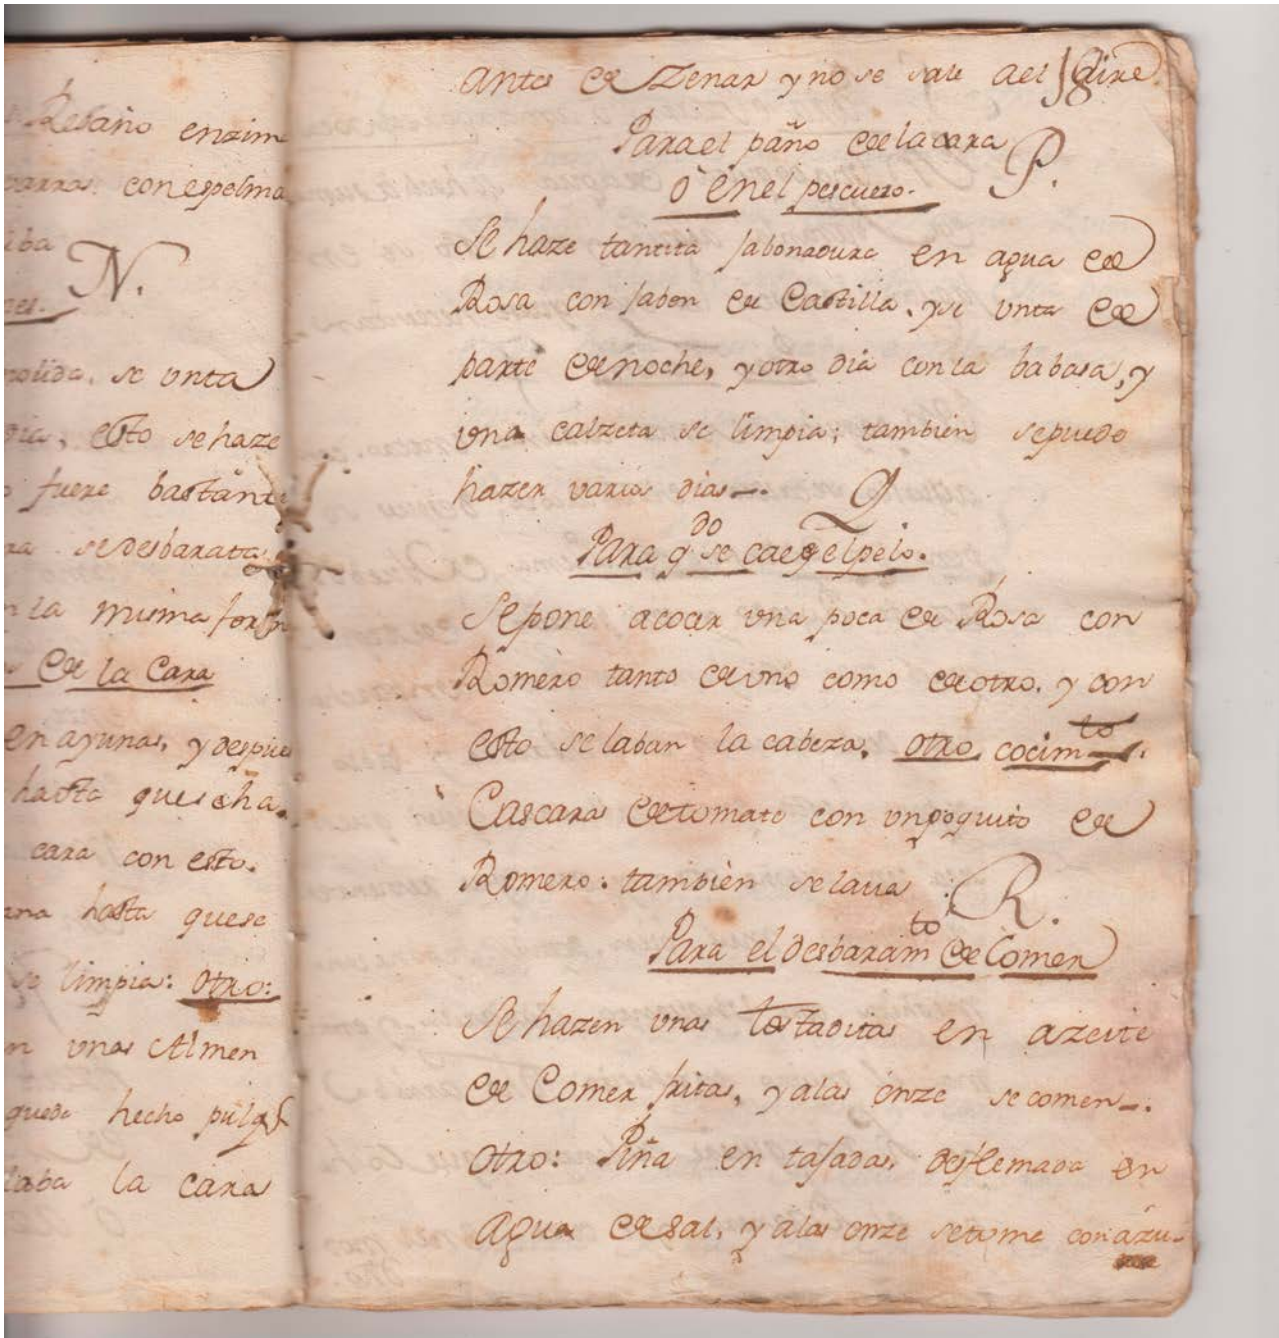 Rebaño enzim
barras con espelma
iba
N.
molida, se unta
dia, esto sehaze
fuere bastante
ra sedesbarata
n la misma form
s de la Cara
en ayunas, y despues
hasta queseha.
cara con esto.
ana hasta quese
se limpia: otro:
n unas Almen
quede hecho
laba la cara
antes de Zenar y no se sale ael Aire
18
Para el paño de la cara
P.
ó enel pescuezo.
Se haze tantita Jabonadura en agua de
Rosa con Jabon de Castilla, y se unta de
parte de noche, y otro dia con la babasa, y
una calzeta se limpia; tambien sepuede
hazer varios dias—.
Q
Para q.do se cae elpelo.
Sepone acocer una poca de Rosa con
Romero tanto de uno como de otro, y con
esto selaban la cabeza. otro cocim.to
Cascaras detomate con unpoquito de
Romero: tambièn selava
R.
Para el desbaram.to de Comer
Se hazen unas tostaditas en azeite
de Comer fritas, y alas onze se comen—.
Otro: Piña en tajadas, desflemada en
agua desal, y alas onze setome con azu-